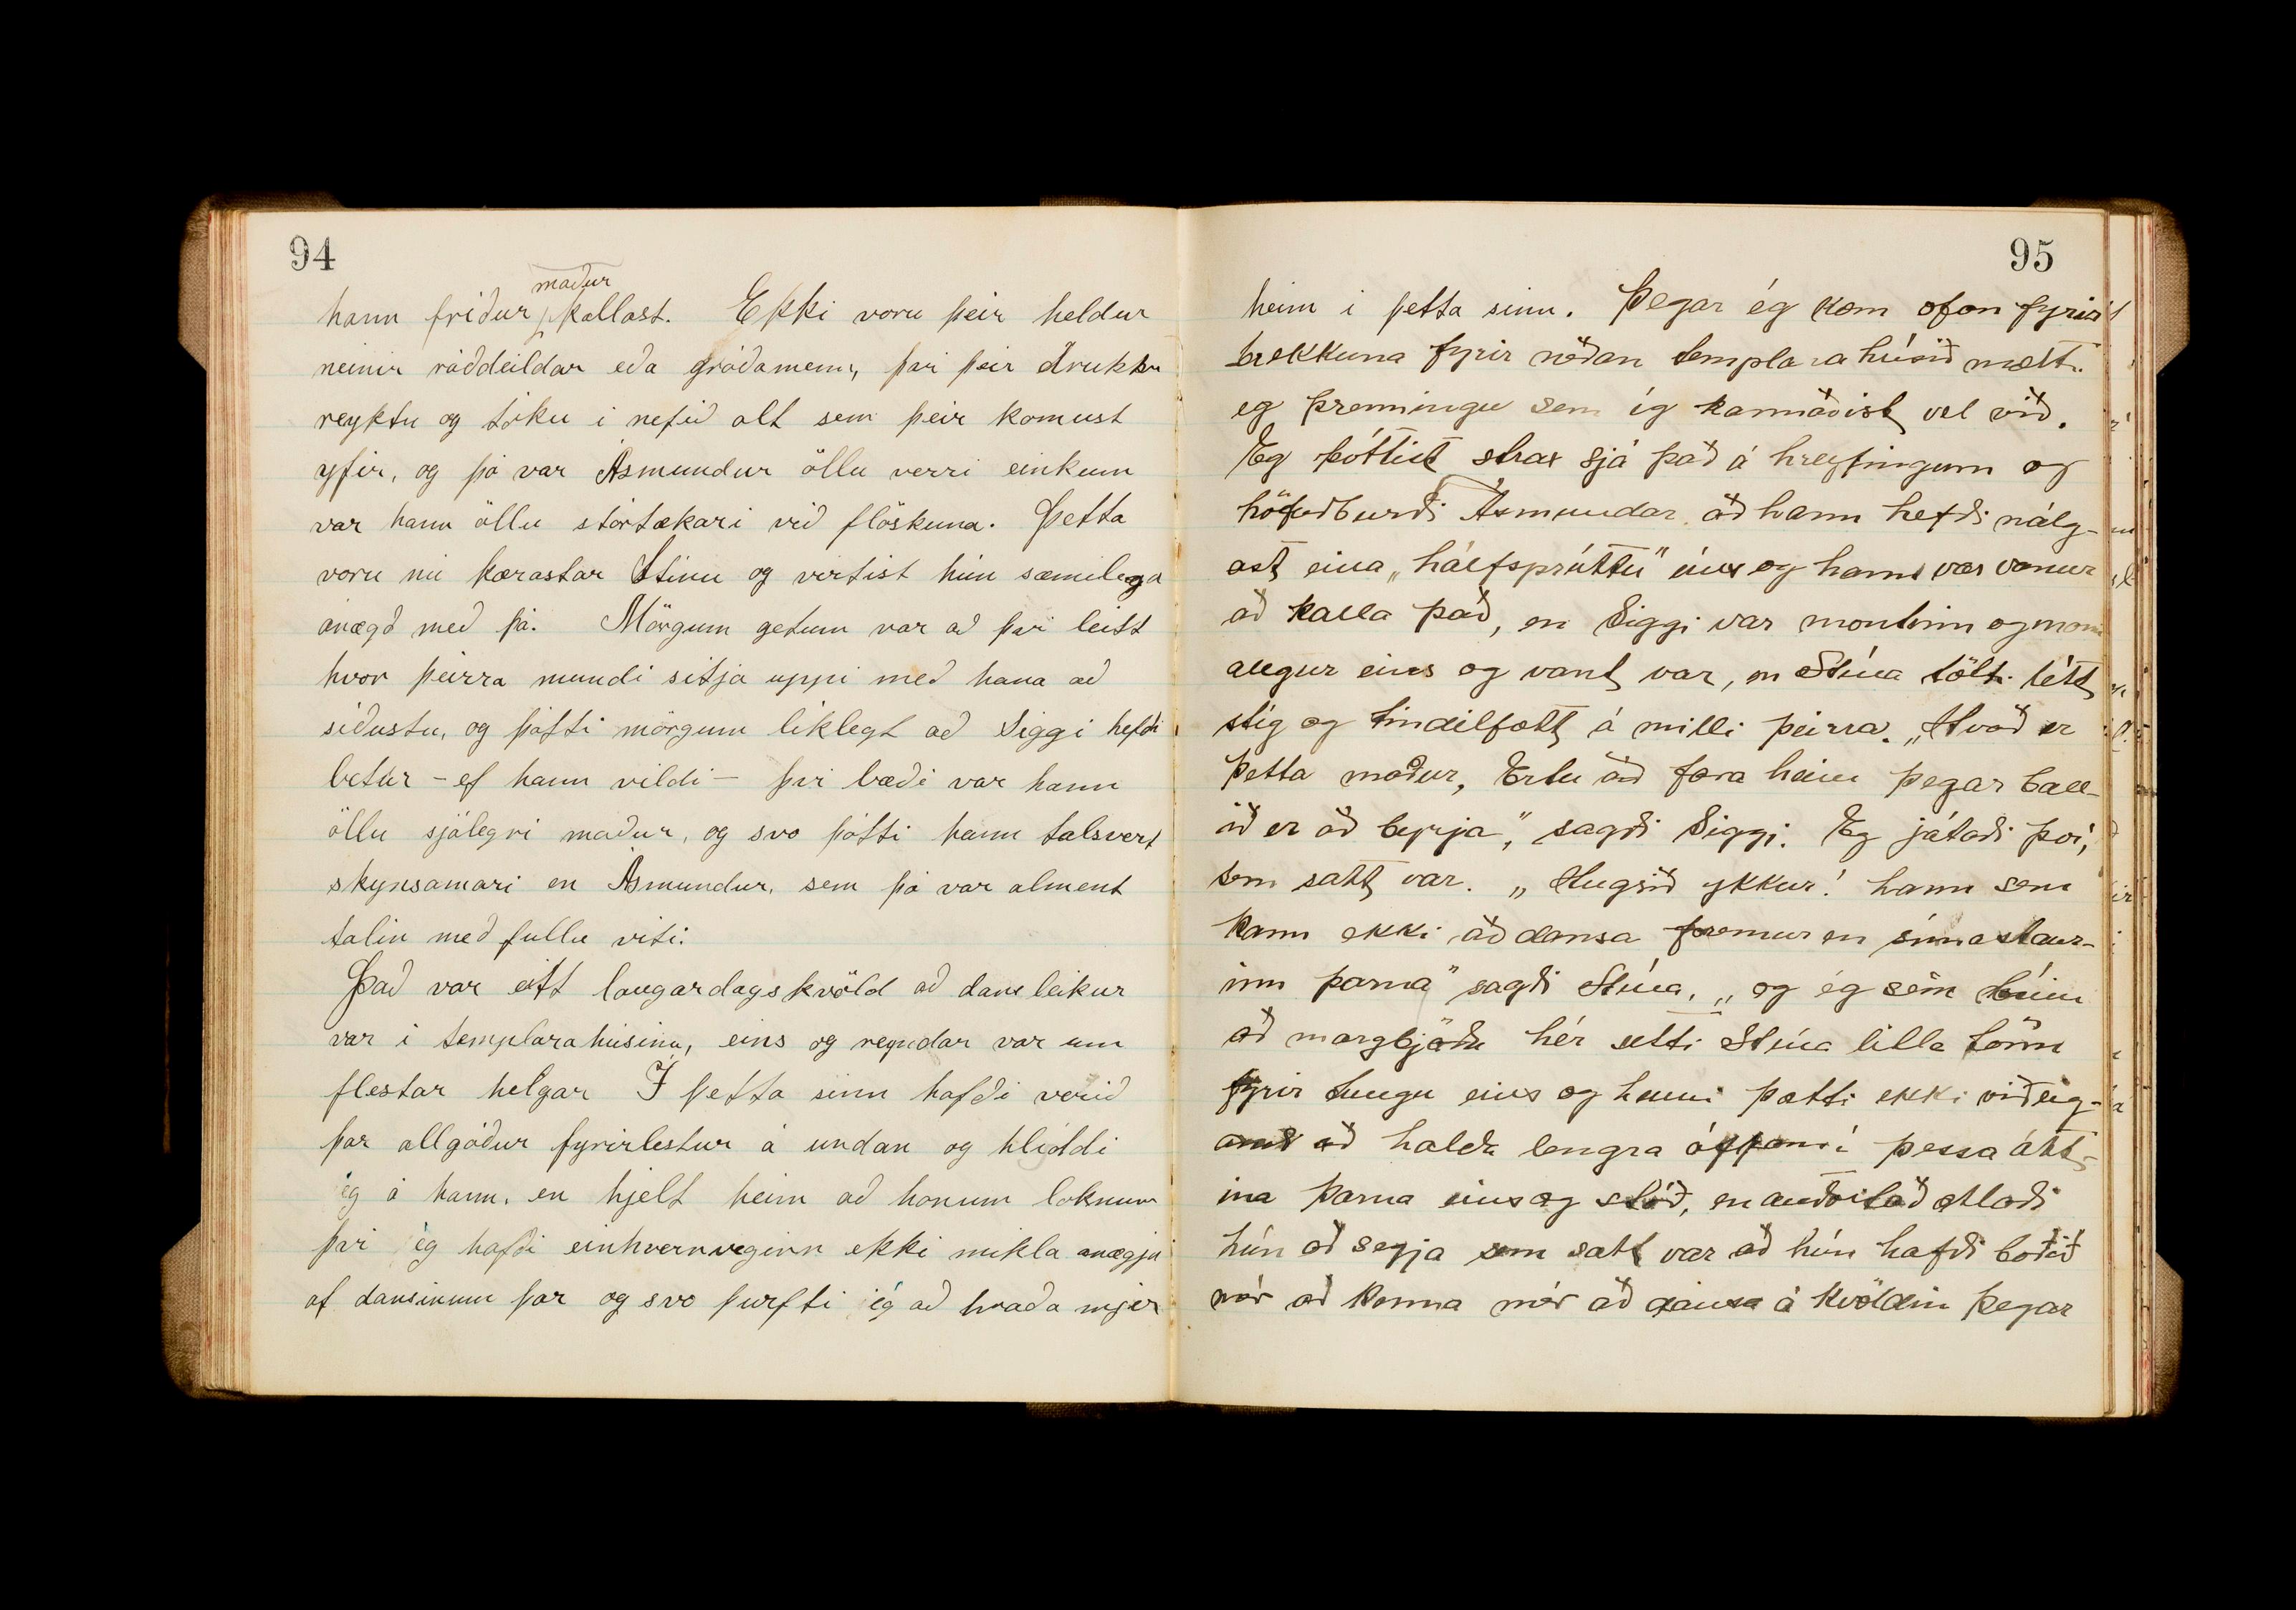 94
maður
hann fríður kallast. Ekki voru þeir heldur
neinir ráðdeildar eða gróðamenn, því þeir drukku
reyktu og tóku i nefið alt sem þeir komust
yfir, og þó var Ásmundur öllu verri einkum
var hann öllu stórtækari við flöskuna. Þetta
voru nú kærastar Stínu og virtist hún sæmilega
ánægð með þá. Mörgum getum var að því leitt
hvor þeirra mundi sitja uppi með hana að
síðustu, og þótti mörgum líklegt að Siggi hefði
betur - ef hann vildi - því bæði var hann
öllu sjálegri maður, og svo þótti hann talsvert
skynsamari en Ásmundur, sem þó var alment
talin með fullu viti.
Það var eitt laugardagskvöld að dansleikur
var i templarahúsinu, eins og reyndar var um
flestar helgar Í þetta sinn hafði verið
þar allgóður fyrirlestur á undan og hlíddi
ég á hann, en hjelt heim að honum loknum
því ég hafði einhvernveginn ekki mikla ánægju
af dansinum þar og svo þurfti ég að hraða mjer
95
heim i þetta sinn. Þegar ég kom ofan fyrir
brekkuna fyrir neðan templarahúsið mætti
eg þrenningu sem ég kannaðist vel við.
Eg þóttist strax sjá það á hreyfingum og
höfuðburði Ásmundar að hann hefði nálg-
ast eina „hálfspróttu" eins og hann var vanur
að kalla það, en Siggi var montinn og mann
alegur eins og vant var, en Stína tölti létt
stíg og tindilfætt á milli þeirra. „Hvað er
þetta maður, Ertu að fara heim þegar ball-
ið er að byrja," sagði Siggi. Eg játaði því,
sem satt var. „Hugsið ykkur! hann sem
kann ekki að dansa fremur en símastaur-
inn þarna" sagði Stína, „og ég sem búin
að margbjóða hér setti Stína litla tönn
fyrir tungu eins og henni þætti ekki viðeig-
andi að halda lengra áfram í þessa átt-
ina þarna eins og stóð, en auðvitað ætlaði
hún að segja sem satt var að hún hafði boðið
mér að kenna mér að dansa á kvöldin þegar